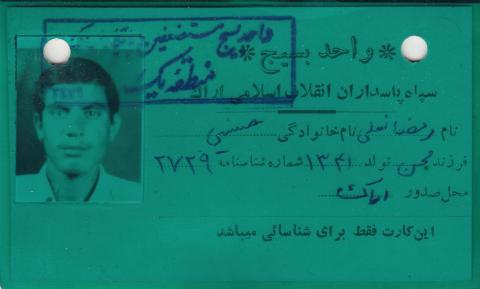 واحد بسیج مستضعفین
منطقه یک
* واحد بسیج *
سپاه پاسداران انقلاب اسلامی اراک
نام رمضانعلی نام خانوادگی حسنی
فرزند محسن تولد ۱۳۴۱ شماره شناسنامه ۲۷۲۹
محل صدور اراک
این کارت فقط برای شناسائی میباشد